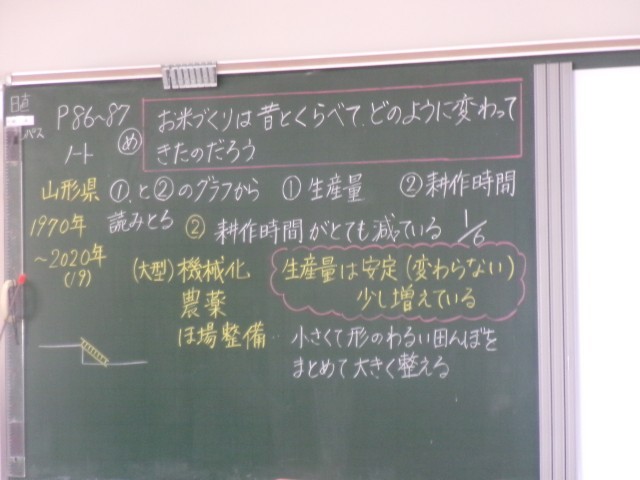 日直
P86~87
パス
ノート
め お米づくりは昔とくらべて、どのように変わって
きたのだろう
山形県 ①と②のグラフから ①生産量 ②耕作時間
1970年 読みとる ② 耕作時間がとても減っている 1/6
~2020年
(19)
(大型) 機械化
農薬
ほ場整備
生産量は安定(変わらない)
少し増えている
小さくて形のわるい田んぼを
まとめて大きく整える